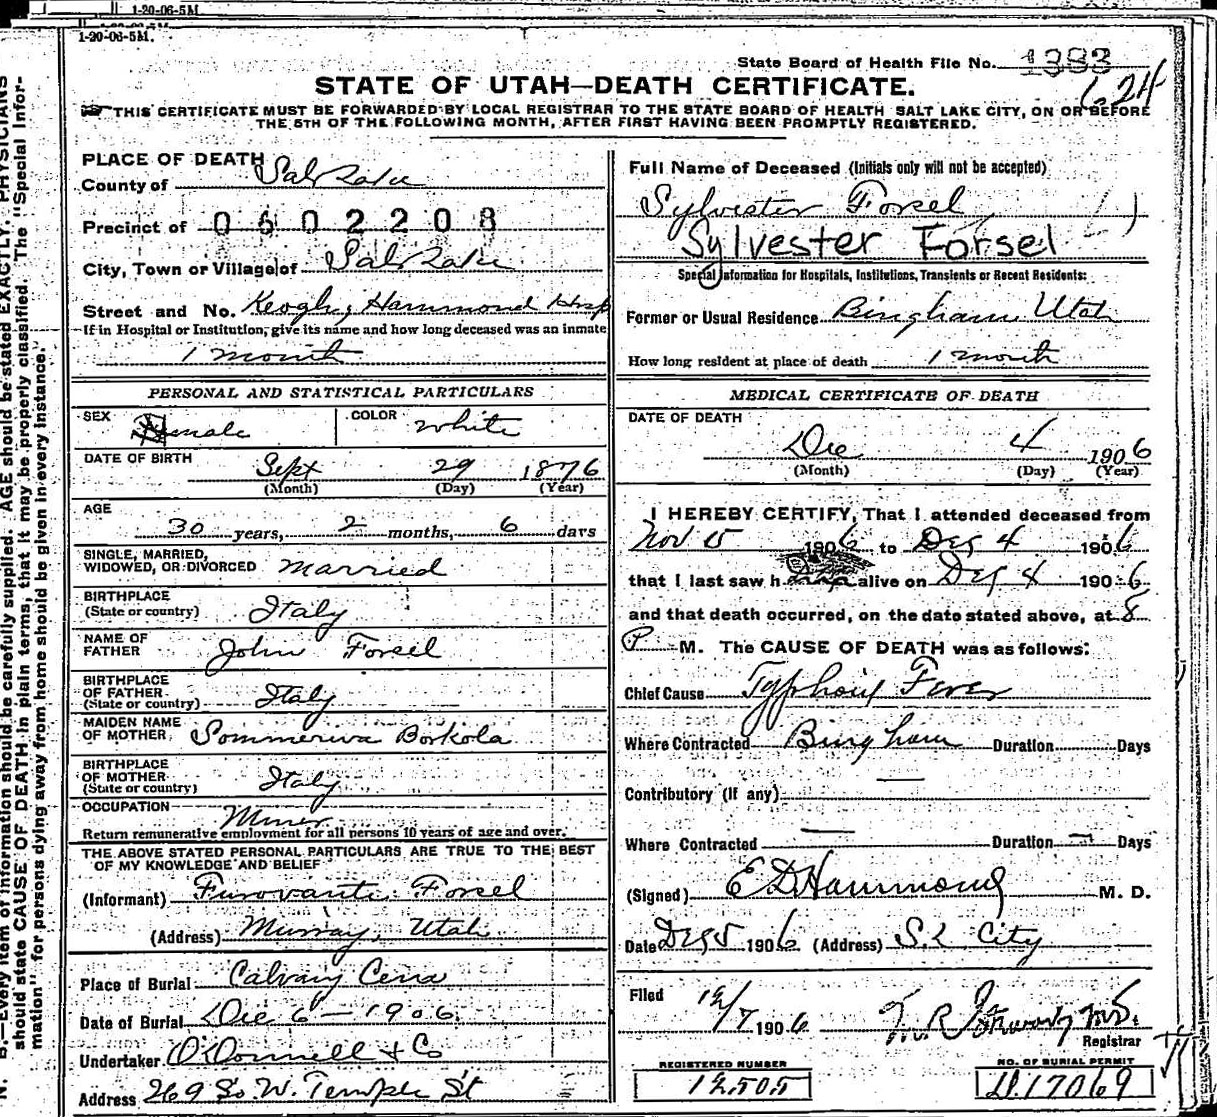 1-20-06-5M
1-20-06-5M.
State Board of Health File No. 1383
1624
STATE OF UTAH—DEATH CERTIFICATE.
THIS CERTIFICATE MUST BE FORWARDED BY LOCAL REGISTRAR TO THE STATE BOARD OF HEALTH SALT LAKE CITY, ON OR BEFORE
THE 5TH OF THE FOLLOWING MONTH, AFTER FIRST HAVING BEEN PROMPTLY REGISTERED.
N. B.—Every item of information should be carefully supplied. AGE should be stated EXACTLY. PHYSICIANS
should state CAUSE OF DEATH in plain terms, that it may be properly classified. The "Special Infor-
mation" for persons dying away from home should be given in every instance.
PLACE OF DEATH
County of Salt Lake
Precinct of 0602208
City, Town or Village of Salt Lake
Street and No. Keogh, Hammond Hosp
If in Hospital or Institution, give its name and how long deceased was an inmate
1 month
PERSONAL AND STATISTICAL PARTICULARS
SEX male COLOR white
DATE OF BIRTH Sept 29 1876
(Month) (Day) (Year)
AGE
30 years, 2 months, 6 days
SINGLE, MARRIED,
WIDOWED, OR DIVORCED Married
BIRTHPLACE
(State or country) Italy
NAME OF
FATHER John Forsel
BIRTHPLACE
OF FATHER
(State or country) Italy
MAIDEN NAME
OF MOTHER Sommeriva Borkola
BIRTHPLACE
OF MOTHER
(State or country) Italy
OCCUPATION Miner
Return remunerative employment for all persons 10 years of age and over.
THE ABOVE STATED PERSONAL PARTICULARS ARE TRUE TO THE BEST
OF MY KNOWLEDGE AND BELIEF
(Informant) Forsel
(Address) Murray, Utah
Place of Burial Calvary
Date of Burial Dec 6 — 1906
Undertaker O'Donnell & Co
Address 269 So. W. Temple St
Full Name of Deceased (Initials only will not be accepted)
Sylvester Forsel
Sylvester Forsel
Special Information for Hospitals, Institutions, Transients or Recent Residents:
Former or Usual Residence Bingham Utah
How long resident at place of death 1 month
MEDICAL CERTIFICATE OF DEATH
DATE OF DEATH
Dec 4 1906
(Month) (Day) (Year)
I HEREBY CERTIFY, That I attended deceased from
Nov 15 1906 to Dec 4 1906
that I last saw h alive on Dec 4 1906
and that death occurred, on the date stated above, at 8
P M. The CAUSE OF DEATH was as follows:
Chief Cause Typhoid Fever
Where Contracted Bingham Duration Days
Contributory (If any) —
Where Contracted — Duration — Days
(Signed) E D Hammond M. D.
Date Dec 5 1906 (Address) S. L City
Filed 12/7 1906 M.D.
Registrar
REGISTERED NUMBER
12505
NO. OF BURIAL PERMIT
D.17069